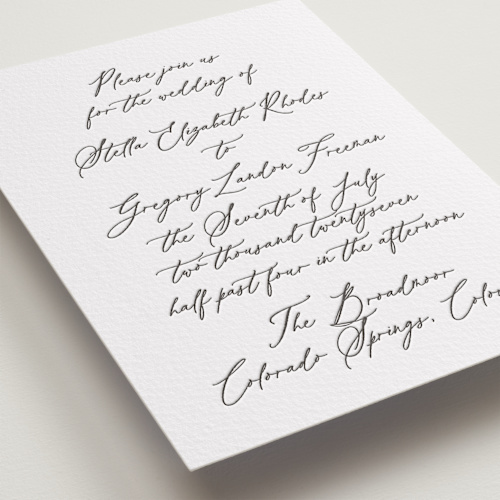 Please join us
for the wedding of
Stella Elizabeth Rhodes
to
Gregory Landon Freeman
the Seventh of July
two thousand twentyseven
half past four in the afternoon
The Broadmoor
Colorado Springs, Colo